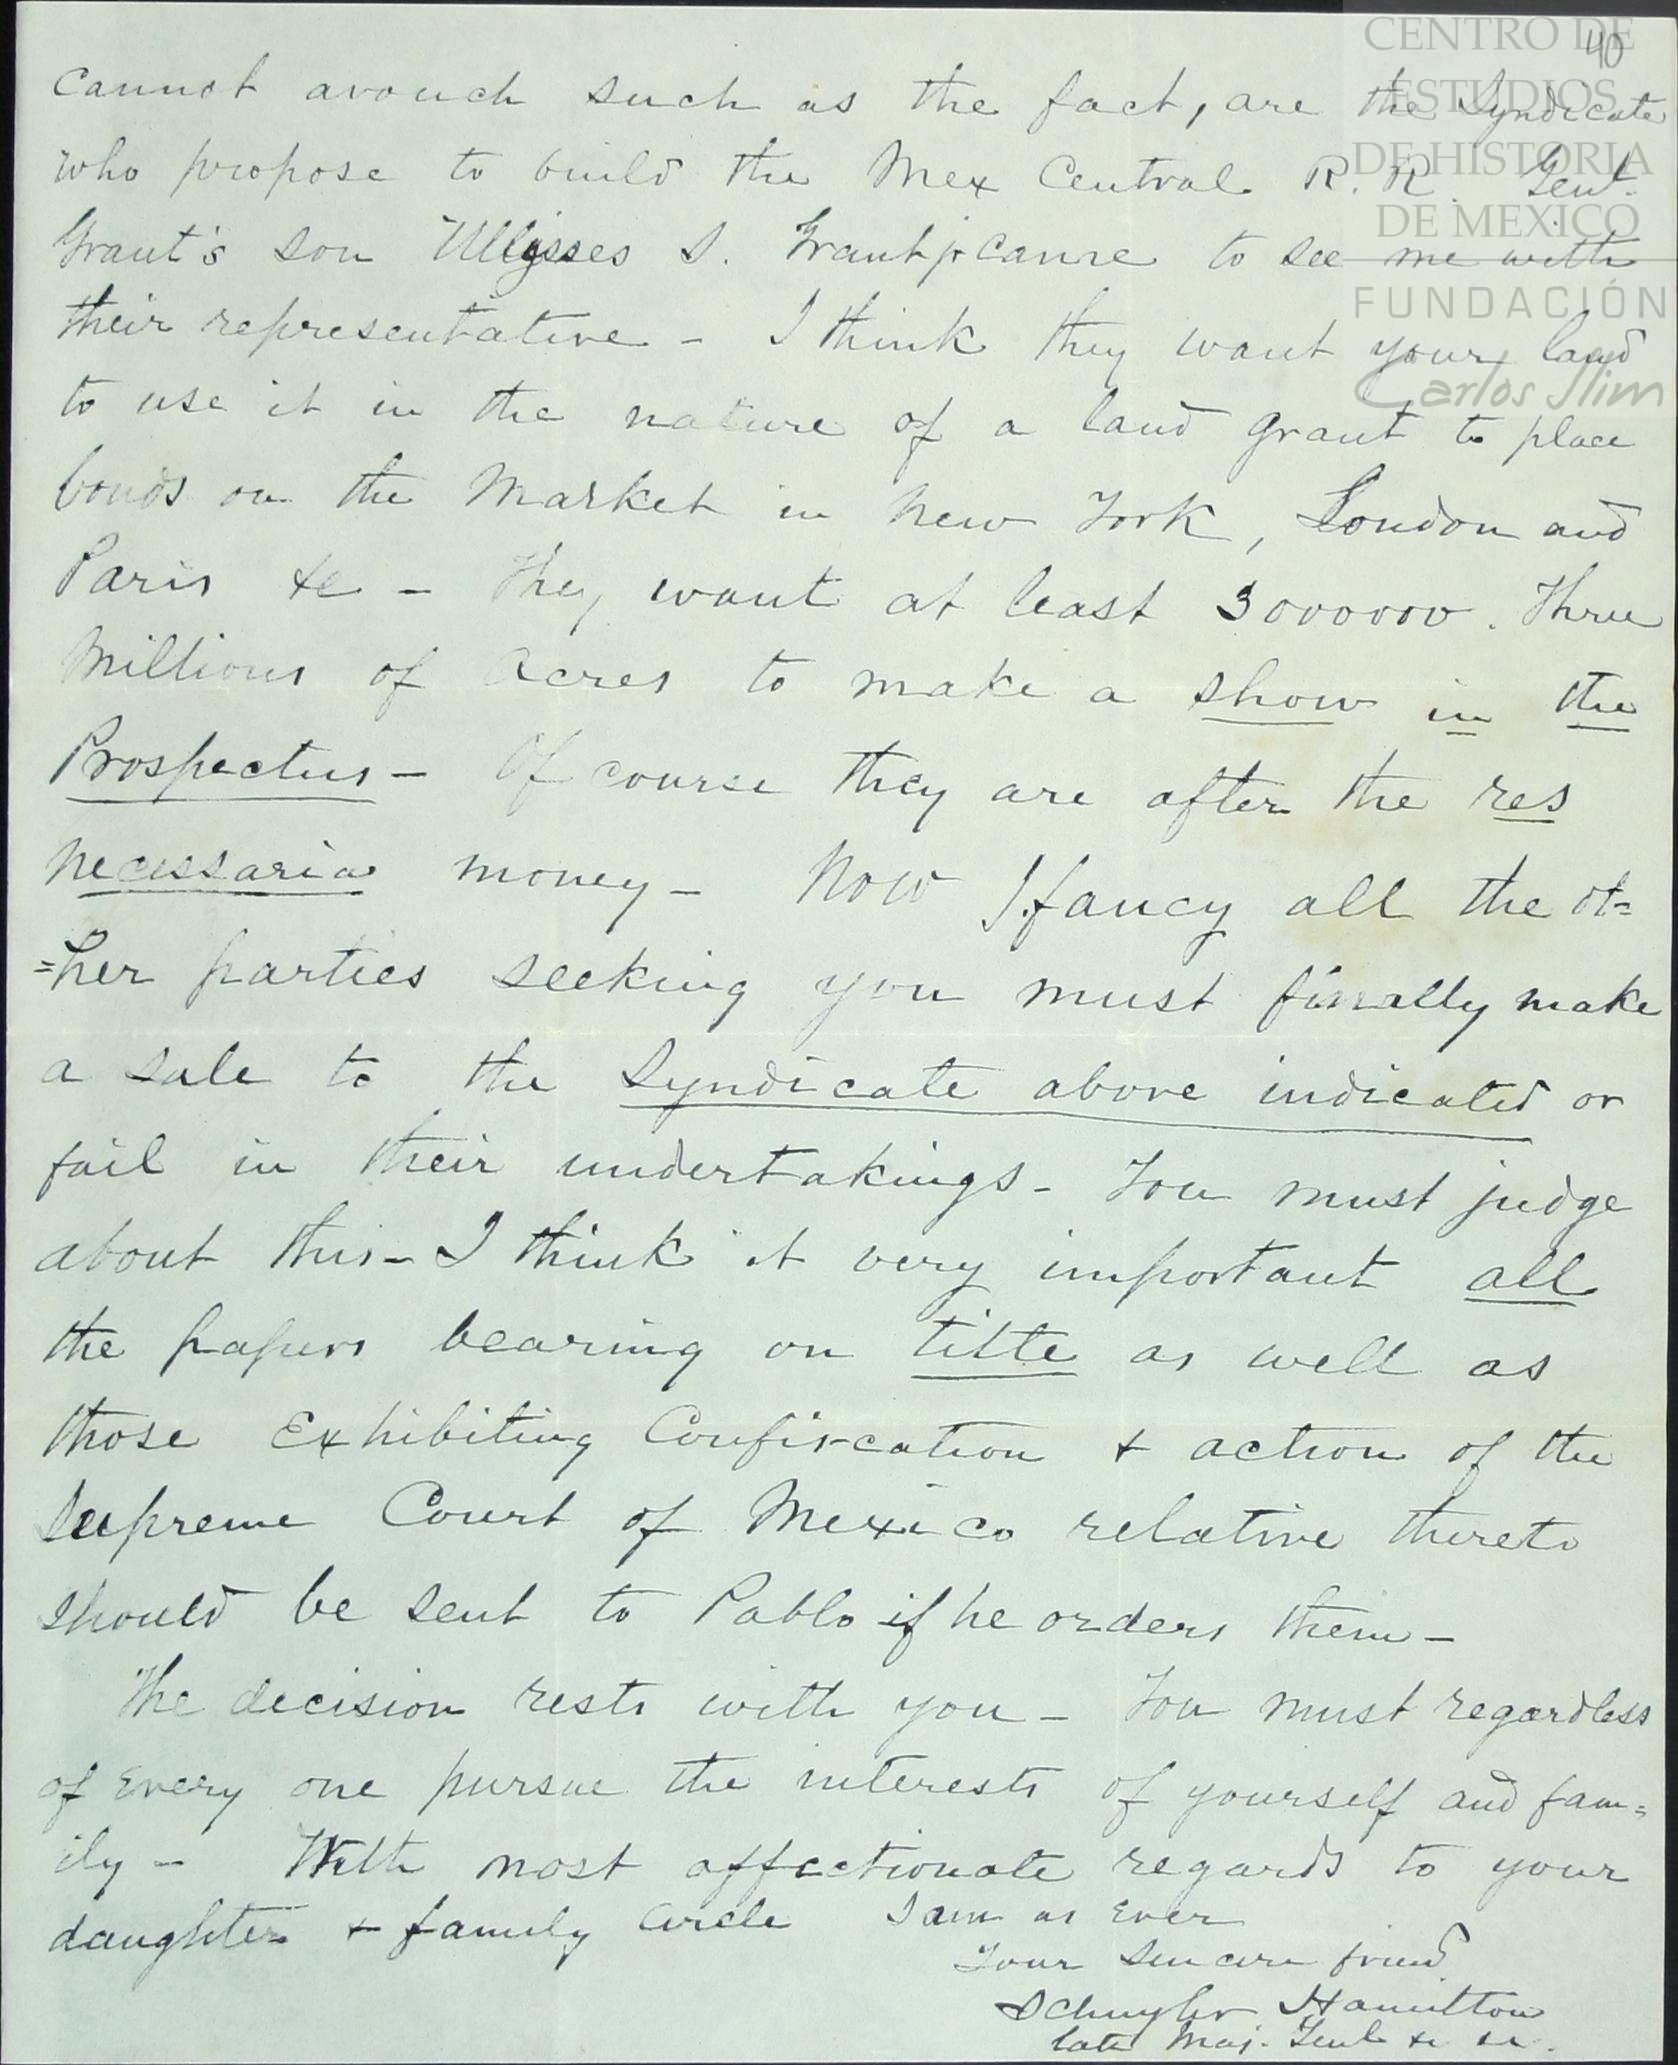 40
CENTRO DE
ESTUDIOS
DE HISTORIA
DE MEXICO
FUNDACIÓN
Carlos Slim
cannot avouch such as the fact, are the Syndicate
who propose to build the Mex Central R. R. Genl.
Grant's son Ullysses S. Grant jr came to see me with
their representative - I think they want your land
to use it in the nature of a land grant to place
bonds on the Market in New York, London and
Paris &c - They want at least 3000000. Three
Millions of Acres to make a show in the
Prospectus - Of course they are after the res
necessaria money - Now I fancy all the ot=
=her parties seeking you must finally make
a sale to the Syndicate above indicated or
fail in their undertakings - You must judge
about this - I think it very important all
the papers bearing on title as well as
those Exhibiting Confiscation & action of the
Supreme Court of Mexico relative thereto
should be sent to Pablo if he orders them -
The decision rests with you - You must regardless
of Every one pursue the interests of yourself and fam=
ily - With most affectionate regards to your
daughter & family circle I am as Ever
Your Sincere friend
Schuyler Hamilton
late Maj. Genl &c &c.